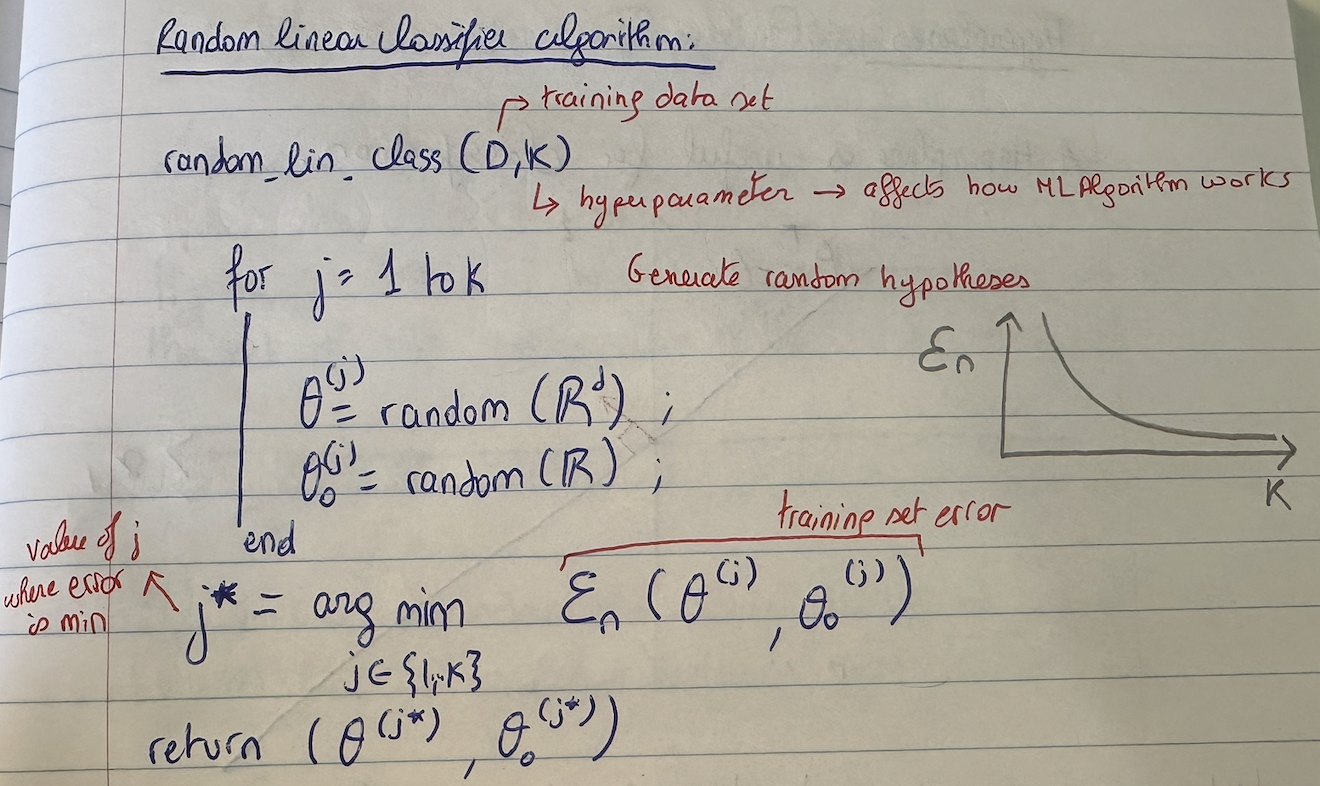 Random linear classifier algorithm:
↱ training data set
random_lin_class (D,K)
↳ hyperparameter → affects how ML Algorithm works
for j = 1 to K
Generate random hypotheses
θ^(j) = random (ℝ^d) ;
θ₀^(j) = random (ℝ) ;
Ɛn
K
end
training set error
value of j
where error
is min
j* = arg min Ɛn (θ^(j), θ₀^(j))
j ∈ {1,..K}
return (θ^(j*), θ₀^(j*))